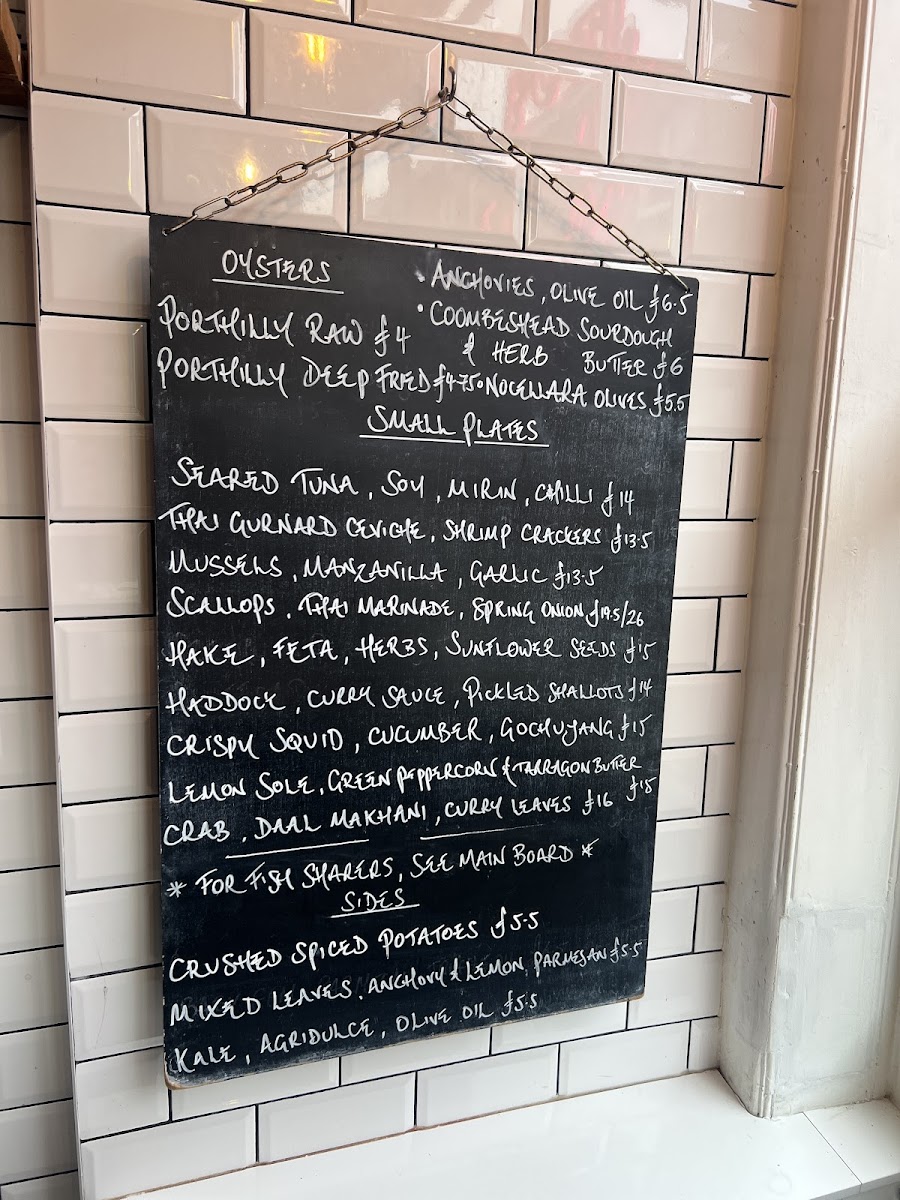 OYSTERS
PORTHILLY RAW £4
PORTHILLY DEEP FRIED £4.75
• ANCHOVIES, OLIVE OIL £6.5
• COOMBESHEAD SOURDOUGH
& HERB BUTTER £6
• NOCELLARA OLIVES £5.5
SMALL PLATES
SEARED TUNA, SOY, MIRIN, CHILLI £14
THAI GURNARD CEVICHE, SHRIMP CRACKERS £13.5
MUSSELS, MANZANILLA, GARLIC £13.5
SCALLOPS, THAI MARINADE, SPRING ONION £19.5/26
HAKE, FETA, HERBS, SUNFLOWER SEEDS £15
HADDOCK, CURRY SAUCE, PICKLED SHALLOTS £14
CRISPY SQUID, CUCUMBER, GOCHUJANG £15
LEMON SOLE, GREEN PEPPERCORN & TARRAGON BUTTER
£18
CRAB, DAAL MAKHANI, CURRY LEAVES £16
* FOR FISH SHARERS, SEE MAIN BOARD *
SIDES
CRUSHED SPICED POTATOES £5.5
MIXED LEAVES, ANCHOVY & LEMON, PARMESAN £5.5
KALE, AGRIDULCE, OLIVE OIL £5.5